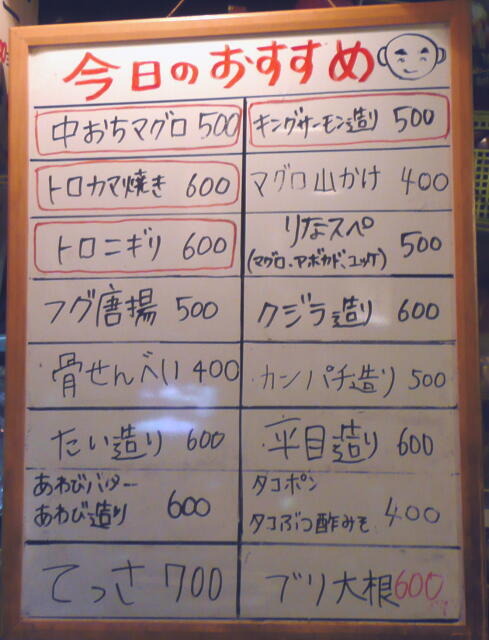 今日のおすすめ
中おちマグロ 500
キングサーモン造り 500
トロカマ焼き 600
マグロ山かけ 400
トロニギリ 600
りなスペ
(マグロ、アボカド、ユッケ) 500
フグ唐揚 500
クジラ造り 600
骨せんべい 400
カンパチ造り 500
たい造り 600
平目造り 600
あわびバター
あわび造り 600
タコポン
タコぶつ酢みそ 400
てっさ 700
ブリ大根 600